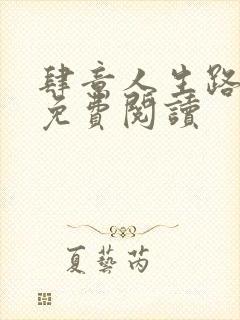 肆意人生路
免費閱讀
夏藝芮